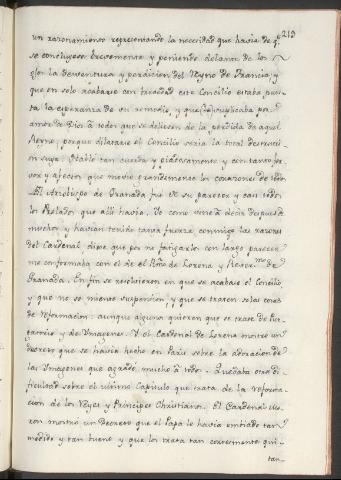 219
un razonamiento representando la neceridad que havia de q.e
se concluyese brevemente y poniendo delante de los
ojos la desventura y perdicion del Reyno de Francia, y
que en solo acabarse con brevedad este Concilio estaba pues
ta la esperanza de su remedio, y que suplicaba por
amor de Dios à todos que se doliesen de la perdida de aquel
Reyno, porque dilatarse el Concilio seria la total destruci
on suya: Hablò tan cuerda y piadosamente y con tanto fer
vor y afecto que moviò grandemente los corazones de todos
El Arzobispo de Granada fue de su parecer y casi todos
los Prelados que alli havia. Yo como vine à decir despues de
muchos y havian tenido tanta fuerza conmigo las razones
del Cardenal dixe que por no fatigarlos con largo parecer
me conformaba con el de el Rmo de Lorena y Rever.mo de
Granada. En fin se resolvieron en que se acabase el Concilio
y que no se nombre suspension y que se traten solas cosas
de reformacion: aunque algunos quieren que se trate de Pur
gatorio y de Imagenes. Y el Cardenal de Lorena mostrò un
Decreto que se havia hecho en Paris sobre la adoracion de
las Imagenes que agradò mucho à todos. Quedaba otra di
ficultad sobre el ultimo Capitulo que trata de la reforma
cion de los Reyes y Principes Christianos. El Cardenal Mo
ron mostrò un Decreto que el Papa le havia embiado tan
medido y tan bueno y que los trata tan cortesmente qui
tan-